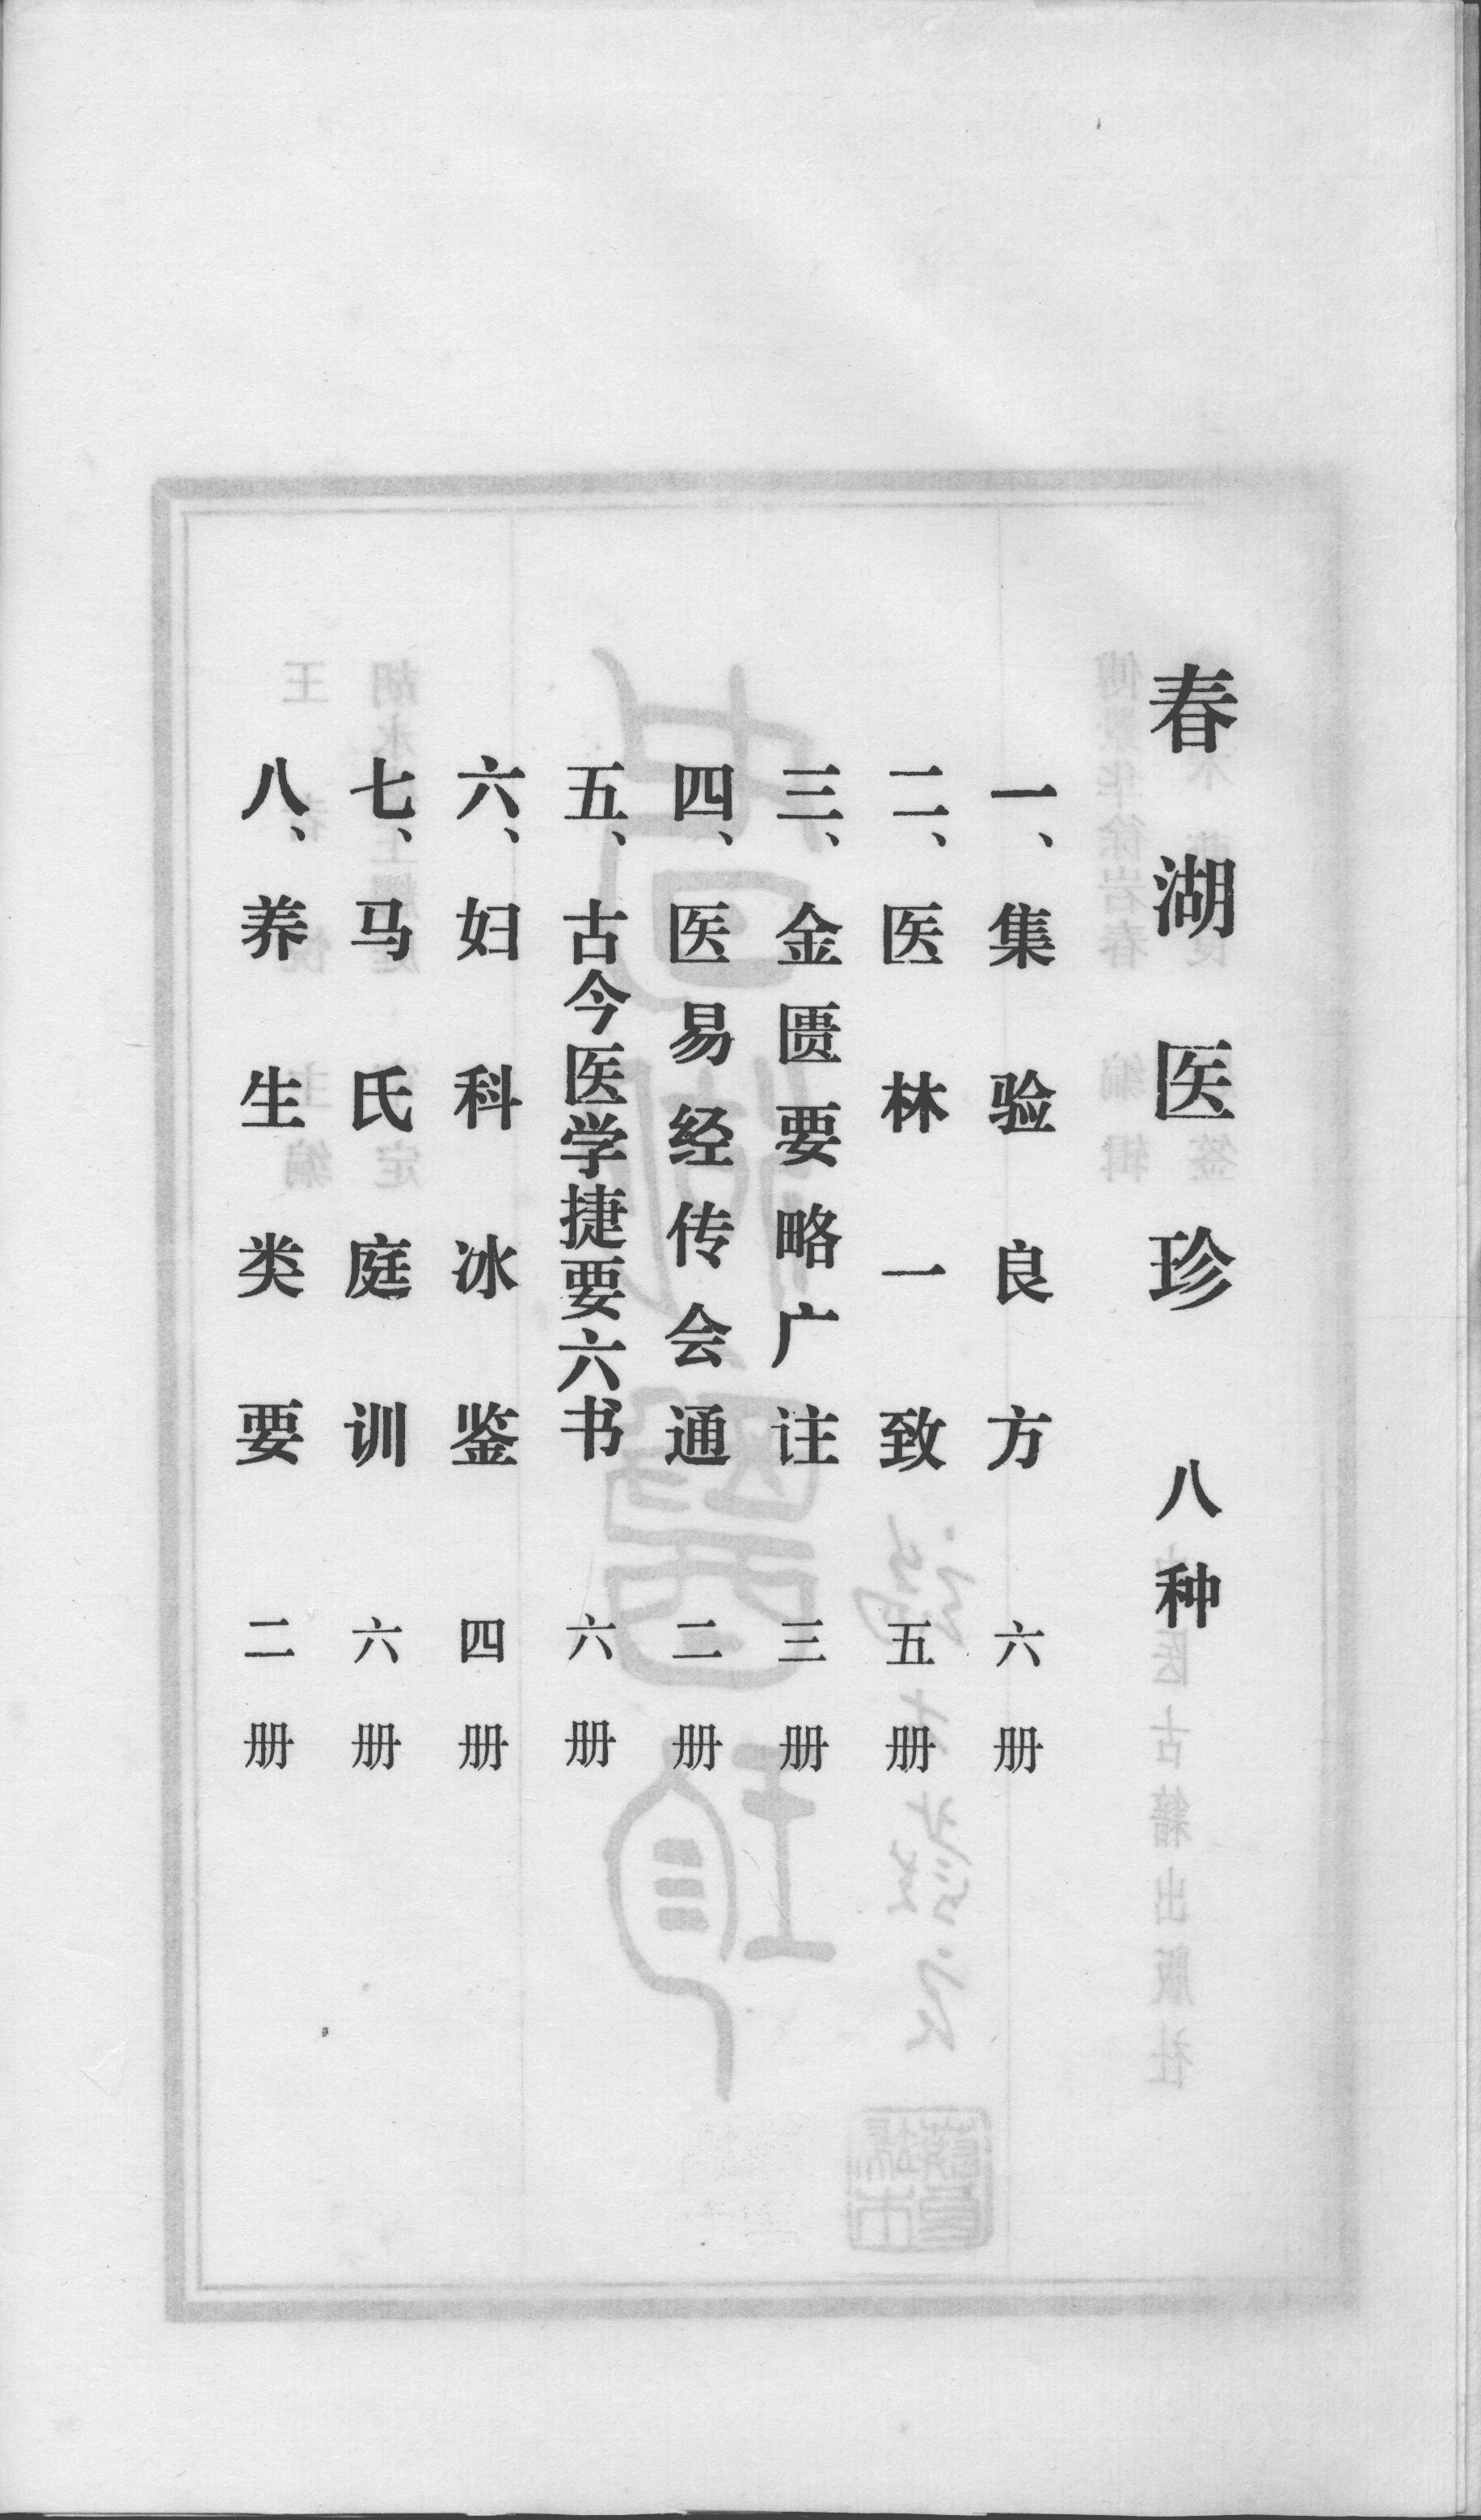 春湖医珍 八种
一、集验良方 六册
二、医林一致 五册
三、金匮要略广注 三册
四、医易经传会通 二册
五、古今医学捷要六书 六册
六、妇科冰鉴 四册
七、马氏庭训 六册
八、养生类要 二册